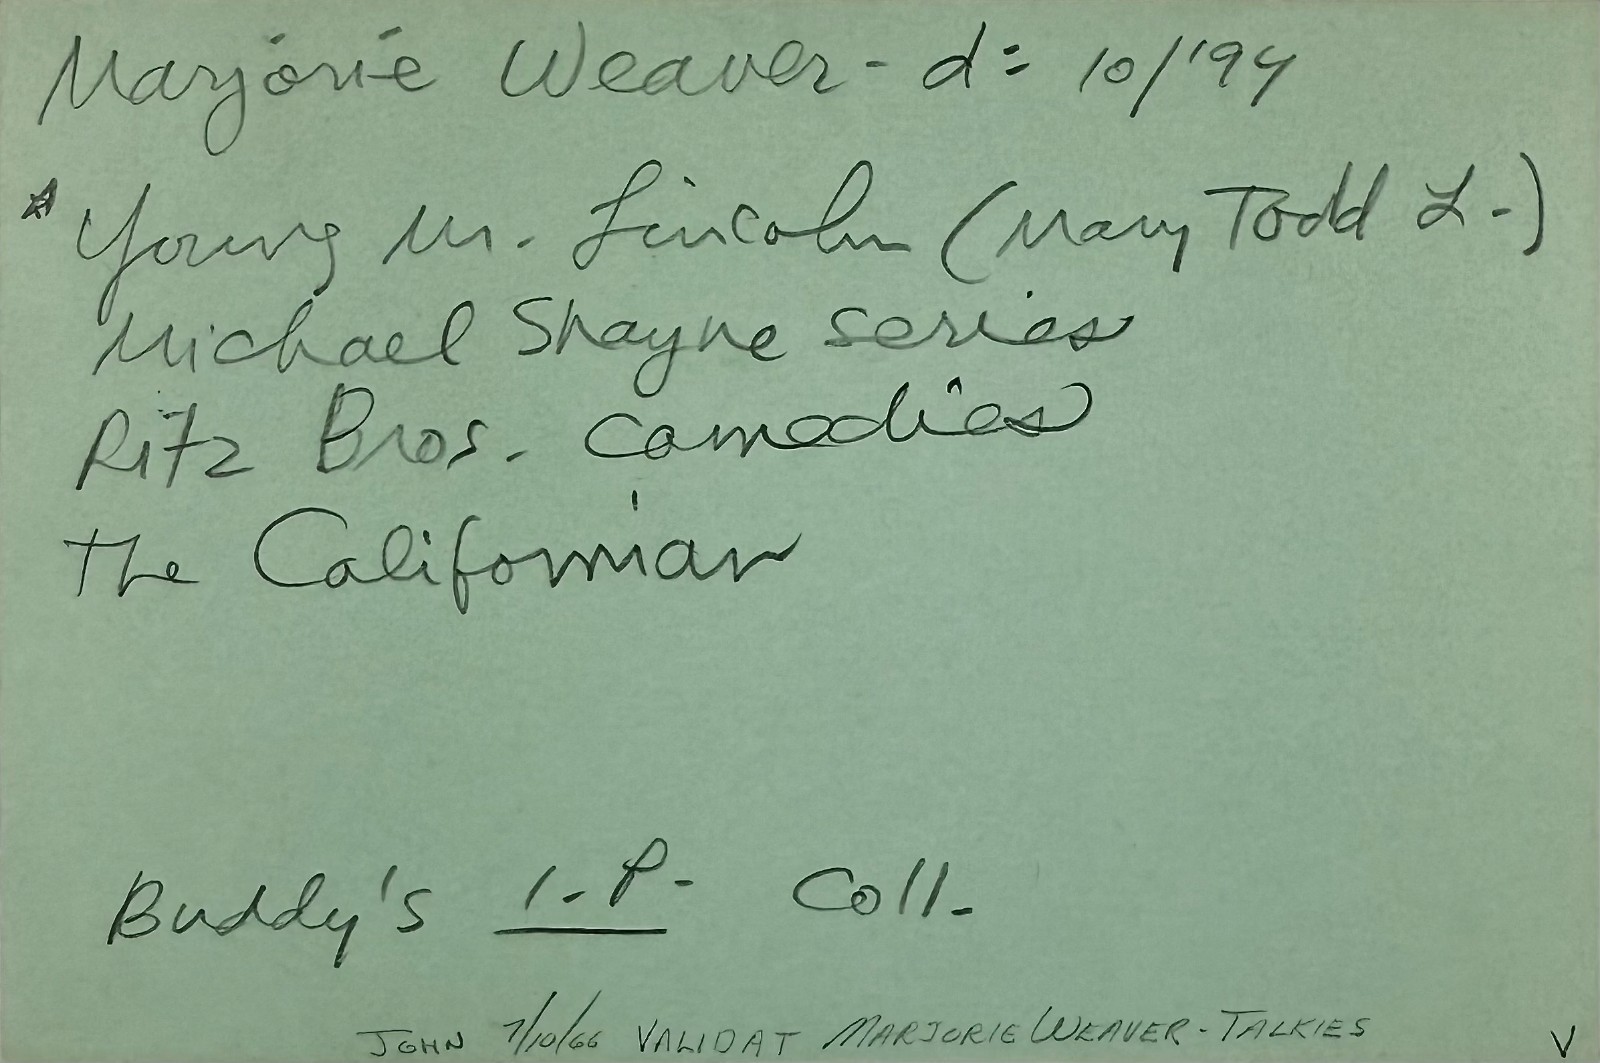 Marjorie Weaver - d: 10/'94
* Young Mr. Lincoln (Mary Todd L-)
Michael Shayne series
Ritz Bros. comedies
The Californian
Buddy's I.P. Coll.
JOHN 7/10/66 VALIDAT MARJORIE WEAVER - TALKIES V